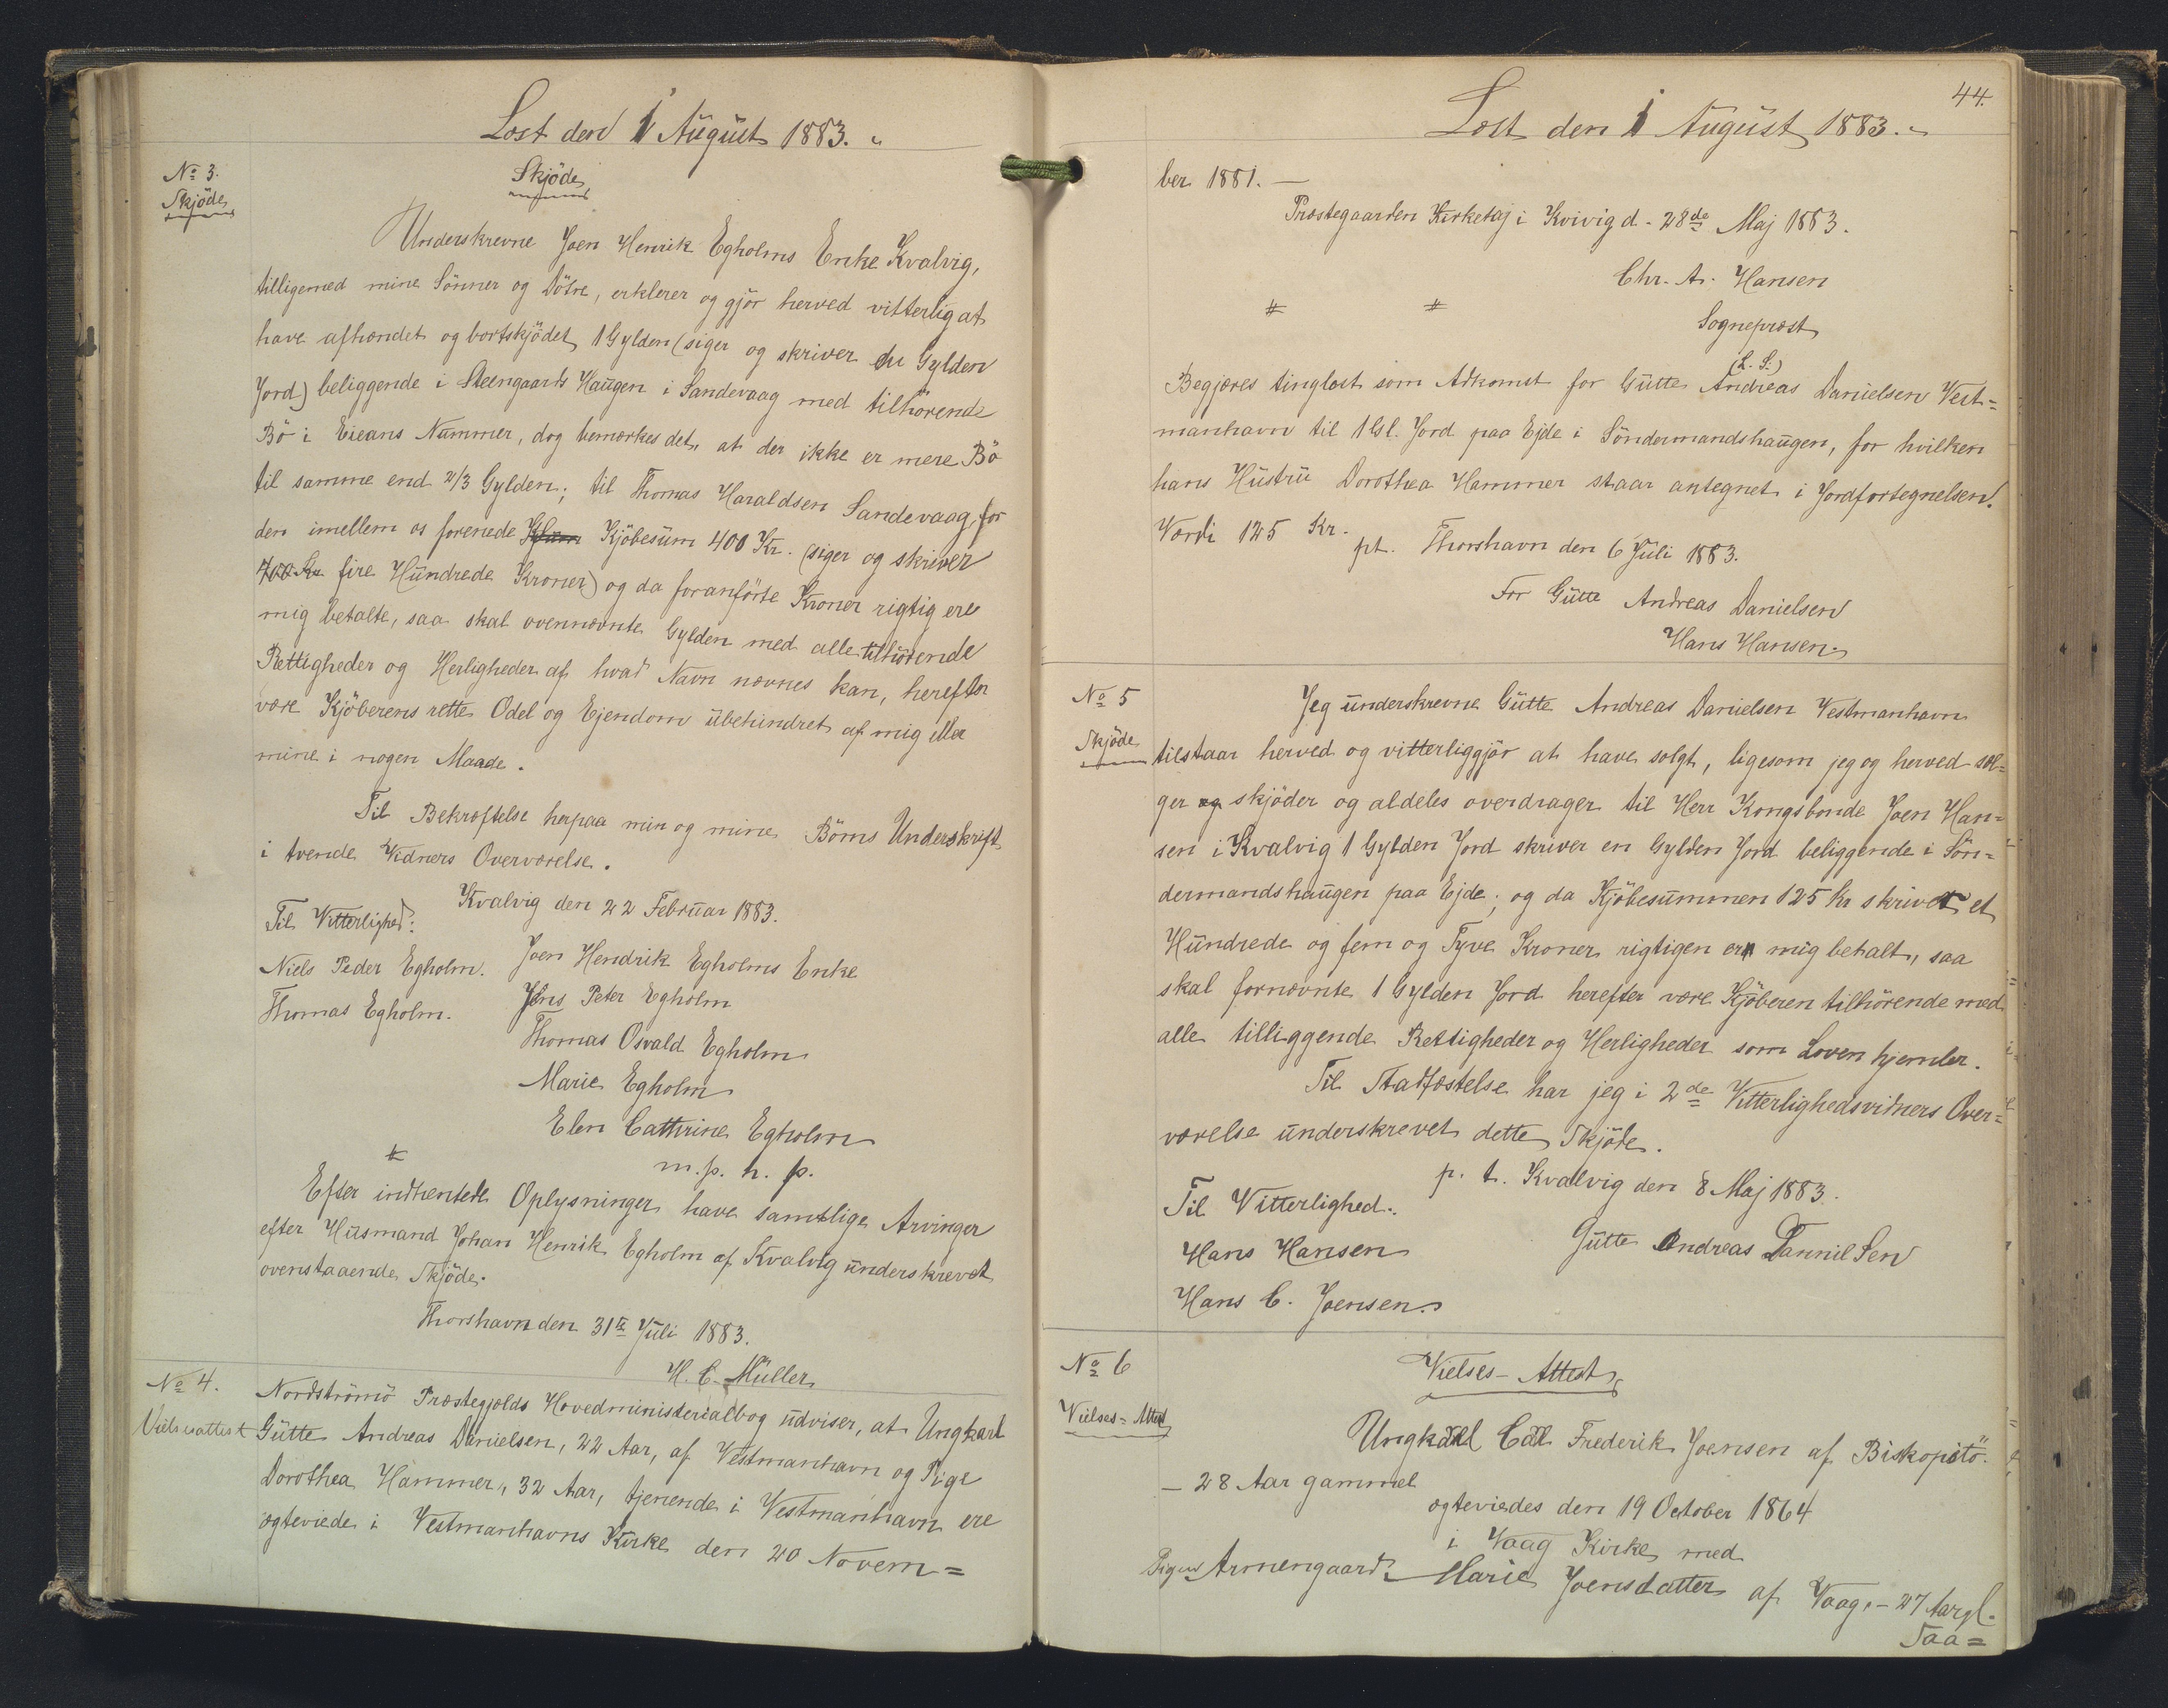 Læst den 1 August 1883.
No 3.
Skjöde
Skjöde
Underskrevne Joen Henrik Egholms Enke Kvalvig,
tilligemed mine Sönner og Dötre, erklerer og gjör herved vitterlig at
have afhændet og bortskjödet 1 Gylden (siger og skriver en Gylden
Jord) beliggende i Steengaards Haugen i Sandevaag med tilhörende
Bö i Eieans Nummer, dog bemærkes det, at der ikke er mere Bö
til samme end 2/3 Gylden; til Thomas Haraldsen Sandevaag, for
den imellem os forenede Kjöbesum 400 Kr. (siger og skriver
fire Hundrede Kroner) og da foranförte Kroner rigtig ere
mig betalte, saa skal ovennævnte Gylden med alle tilhörende
Rettigheder og Herligheder af hvad Navn nævnes kan, herefter
være Kjöberens rette Odel og Ejendom ubehindret af mig eller
mine i nogen Maade.
Til Bekræftelse herpaa min og mine Börns Underskrift
i tvende Vidners Overværelse.
Kvalvig den 22 Februar 1883.
Til Vitterlighed:
Joen Hendrik Egholms Enke
Niels Peder Egholm.
Jens Peter Egholm
Thomas Egholm.
Thomas Osvald Egholm
Marie Egholm
Elen Cathrine Egholm
m. p. h. p.
#
Efter indhentede Oplysninger have samtlige Arvinger
efter Husmand Johan Henrik Egholm af Kvalvig underskrevet
ovenstaaende Skjöde.
Thorshavn den 31te Juli 1883.
H. C. Müller
No 4.
Vielsesattest
Nordströmö Præstegjælds Hovedministerialbog udviser, at Ungkarl
Gutte Andreas Danielsen, 22 Aar, af Vestmanhavn og Pige
Dorothea Hammer, 32 Aar, tjenende i Vestmanhavn ere
ægteviede i Vestmanhavns Kirke den 20 Novem=
44.
Læst den 1 August 1883.
ber 1881. —
Præstegaarden Kirketaj i Kvivig d. 28de Maj 1883.
Chr. A. Hansen
# #
Sognepræst
(L. S.)
Begjæres tinglæst som Adkomst for Gutte Andreas Danielsen Vest=
manhavn til 1 Gl. Jord paa Ejde i Söndermandshaugen, for hvilken
hans Hustru Dorothea Hammer staar antegnet i Jordfortegnelsen.
Værdi 125 Kr.
pt. Thorshavn den 6 Juli 1883.
For Gutte Andreas Danielsen
Hans Hansen.
No 5
Skjöde
Jeg underskrevne Gutte Andreas Danielsen Vestmanhavn
tilstaar herved og vitterliggjör at have solgt, ligesom jeg og herved sæl=
ger og skjöder og aldeles overdrager til Herr Kongsbonde Joen Han=
sen i Kvalvig 1 Gylden Jord skriver en Gylden Jord beliggende i Sön=
dermandshaugen paa Ejde; og da Kjöbesummen 125 Kr skriver et
Hundrede og fem og Tyve Kroner rigtigen er mig betalt, saa
skal fornævnte 1 Gylden Jord herefter være Kjöberen tilhörende med
alle tilliggende Rettigheder og Herligheder som Loven hjemler.
Til Stadfæstelse har jeg i 2de Vitterlighedsvidners Over=
værelse underskrevet dette Skjöde.
p. t. Kvalvig den 8 Maj 1883.
Til Vitterlighed.
Gutte Andreas DannilSen
Hans Hansen
Hans C. Joensen.
No 6
Vielses=Attest
Vielses-Attest
Ungkarl Carl Frederik Joensen af Biskopstö.
— 28 Aar gammel
ægteviedes den 19 October 1864
i Vaag Kirke med
Pigen Armengaard Marie Joensdatter af Vaag. — 27 Aar gl.
Saa=